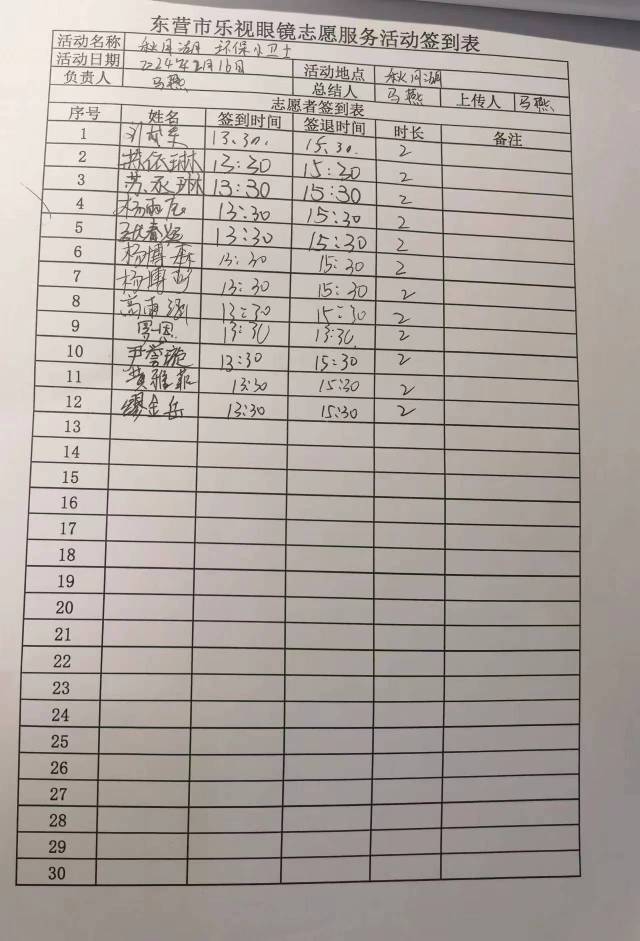 东营市乐视眼镜志愿服务活动签到表
活动名称 秋月湖 环保小卫士
活动日期 2024年2月16日 活动地点 秋月湖
负责人 马燕 总结人 马燕 上传人 马燕
志愿者签到表
序号 姓名 签到时间 签退时间 时长 备注
1 13:30. 15:30. 2
2 13:30 15:30 2
3 13:30 15:30 2
4 13:30 15:30 2
5 张春 13:30 15:30 2
6 杨博森 13:30 15:30 2
7 杨博 13:30 15:30 2
8 高雨 13:30 15:30 2
9 13:30 13:30. 2
10 尹誉 13:30 15:30 2
11 黄雅菲 13:30 15:30 2
12 金岳 13:30 15:30 2
13
14
15
16
17
18
19
20
21
22
23
24
25
26
27
28
29
30